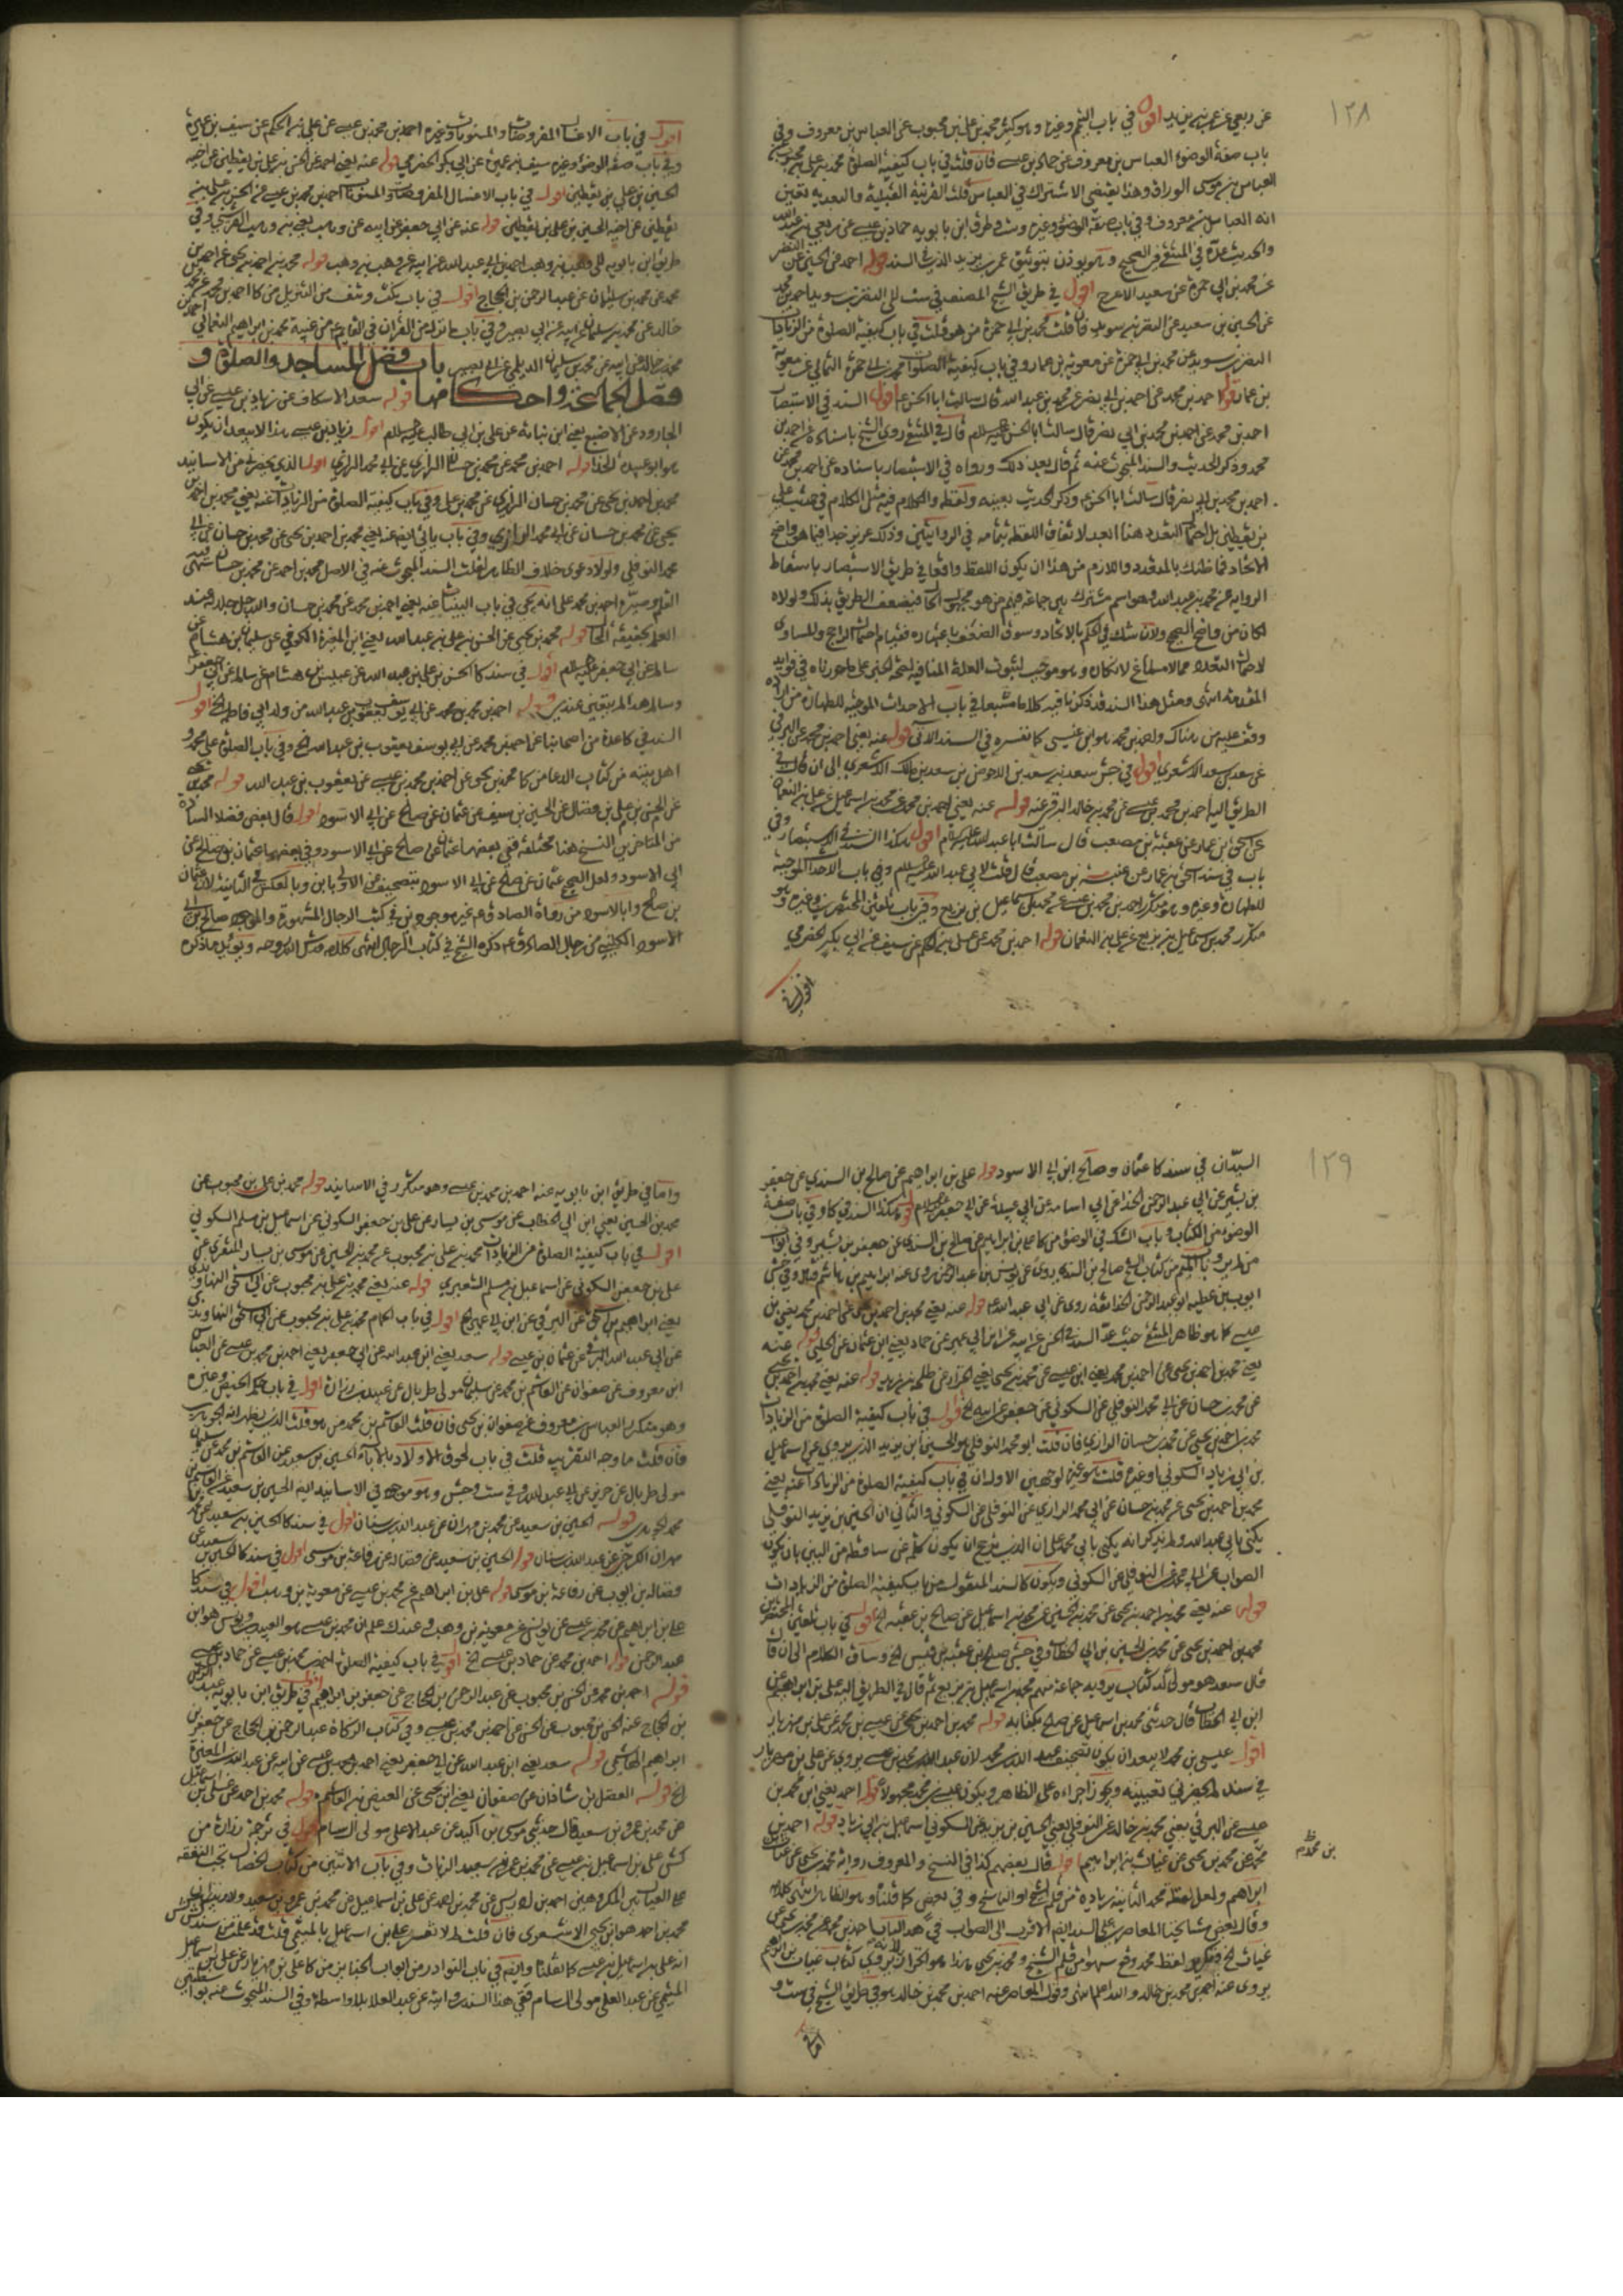 ١٢٨
عن ربعي عن عمر بن يزيد اقول في باب التيمم وغيره وهو كثير محمد بن علي بن محبوب عن العباس بن معروف وفي
باب صفة الوضوء العباس بن معروف عن حماد بن عيسى فان قلت في باب كيفية الصلوة محمد بن علي بن محبوب عن
العباس بن موسى الوراق وهذا يقتضي الاشتراك في العباس قلت القرينة القبلية والبعدية تعين
انه العباس بن معروف وفي باب صفة الوضوء وغيره وست وطرق ابن بابويه حماد بن عيسى عن ربعي بن عبد الله
والحديث عده في المنتقى من الصحيح وهو يوذن بتوثيق عمر بن يزيد الذي في السند قوله احمد عن الحسين عن النضر
عن محمد بن ابي حمزة عن سعيد الاعرج اقول في طريق الشيخ المصنف في ست الى النضر بن سويد احمد بن محمد
عن الحسين بن سعيد عن النضر بن سويد فان قلت محمد بن ابي حمزة من هو قلت في باب كيفية الصلوة من الزيادات
النضر بن سويد عن محمد بن ابي حمزة عن معوية بن عمار وفي باب كيفية الصلوات محمد بن ابي حمزة الثمالي عن معوية
بن عمار قوله احمد بن محمد عن احمد بن ابي نصر عن محمد بن عبد الله قال سالت ابا الحسن ع اقول السند في الاستبصار
احمد بن محمد عن احمد بن محمد بن ابي نصر قال سالت ابا الحسن عليه السلام قال في المنتقى روى الشيخ باسناده عن احمد بن
محمد وذكر الحديث والسند المبحوث عنه ثم قال بعد ذلك ورواه في الاستبصار باسناده عن احمد بن محمد عن
احمد بن محمد بن ابي نصر قال سالت ابا الحسن وذكر الحديث بعينه ولفظه والكلام فيه مثل الكلام في حديث علي
بن يقطين بل احتمال التعدد هنا ابعد لاتفاق اللفظ بتمامه في الروايتين وذلك عزيز جدا فيما هو واضح
الاتحاد فما ظنك بالمتعدد واللازم من هذا ان يكون اللفظ واقعا في طريق الاستبصار باسقاط
الرواية عن محمد بن عبد الله وهو اسم مشترك بين جماعة فيهم من هو مجهول الحال فيضعف الطريق بذلك ولولاه
لكان من واضح الصحيح ولان شك في الحكم بالاتحاد وسوق الضعف باعتباره فقيام احتمال الراجح والمساوي
لاحتمال التعدد مما لا مساغ لانكاره وهو موجب لثبوت العلة المنافية لصحة الخبر على ما حررناه في فوايد
المقدمة انتهى ومثل هذا السند قد ذكرنا فيه كلاما مشبعا في باب الاحداث الموجبة للطهارة من اراده
وقف عليه من هناك واحمد بن محمد هو ابن عيسى كما نفسره في السند الآتي قوله عنه يعني احمد بن محمد عن البرقي
عن سعد بن سعد الاشعري اقول في جش سعد بن سعد بن الاحوص بن سعد بن مالك الاشعري الى ان قال في
الطريق اليه احمد بن محمد بن عيسى عن محمد بن خالد البرقي عنه قوله عنه يعني احمد بن محمد عن محمد بن اسماعيل عن علي بن النعمان
عن اسحق بن عمار عن عقبة بن مصعب قال سالت ابا عبد الله عليه السلام اقول هكذا السند في الاستبصار وفي
باب في سند اسحق بن عمار عن عنبسة بن مصعب قال قلت لابي عبد الله عليه السلام وفي باب الاحداث الموجبة
للطهارة وغيره وهو متكرر احمد بن محمد بن عيسى عن محمد بن اسماعيل بن بزيع وفي باب تلقين المحتضرين وغيره وهو
متكرر محمد بن اسماعيل بن بزيع عن علي بن النعمان قوله احمد بن محمد عن علي بن الحكم عن سيف عن ابي بكر الحضرمي
اقول في
اقول في باب الاغسال المفروضات والمسنونات وغيره احمد بن محمد بن عيسى عن علي بن الحكم عن سيف بن عميرة
وفي باب صفة الوضوء وغيره سيف بن عميرة عن ابي بكر الحضرمي قوله عنه يعني احمد عن الحسن بن علي بن يقطين عن اخيه
الحسين بن علي بن يقطين اقول في باب الاغسال المفروضات والمسنونات احمد بن محمد بن عيسى عن الحسن بن علي بن
يقطين عن اخيه الحسين بن علي بن يقطين قوله عنه عن ابي جعفر عن ابيه عن وهب يعني بن وهب القرشي وفي
طريق ابن بابويه الى وهب بن وهب احمد بن ابي عبد الله عن ابيه عن وهب بن وهب قوله محمد بن احمد بن يحيى عن احمد بن
محمد عن محمد بن سليمان عن عبد الرحمن بن الحجاج اقول في باب نكت ونتف من التنزيل من كا احمد بن محمد عن محمد
خالد عن محمد بن سليمان عن ابيه عن ابي بصير وفي باب ما نزل من القرآن في القايم ع من غيبة محمد بن ابراهيم النعماني احمد بن
محمد بن خالد عن ابيه عن محمد بن سليمان الديلمي عن ابي بصير باب فضل المساجد والصلوة و
فضل الجماعة واحكامها قوله سعد الاسكاف عن زياد بن عيسى عن ابي
الجارود عن الاصبغ يعني ابن نباته عن علي بن ابي طالب عليه السلام اقول زياد بن عيسى هذا لا يبعد ان يكون
هو ابو عبيدة الحذا قوله احمد بن محمد عن محمد بن حسان الرازي عن ابي محمد الرازي اقول الذي يحضرني من الاسانيد
محمد بن احمد بن يحيى عن محمد بن حسان الرازي عن محمد بن علي وفي باب كيفية الصلوة من الزيادات عنه يعني محمد بن احمد بن
يحيى عن محمد بن حسان عن ابي محمد الرازي وفي باب ياتي ايضا عنه يعني محمد بن احمد بن يحيى عن محمد بن حسان عن ابي
محمد النوفلي ولولا دعوى خلاف الظاهر لقلت السند المبحوث عنه في الاصل محمد بن احمد عن محمد بن حسان فيه سهى
القلم وصيره احمد بن محمد على انه يجئ في باب البينات عنه يعني احمد بن محمد عن محمد بن حسان والله جل جلاله عنده
العلم بحقيقة الحال قوله محمد بن يحيى عن الحسن بن علي بن عبد الله يعني ابن المغيرة الكوفي عن سليمان بن هشام عن
سالم عن ابي جعفر عليه السلام اقول في سند كا الحسن بن علي بن عبد الله عن عبيس بن هشام عن سالم عن ابي جعفر ع
وسالم هذا لم يتعين عندي قوله احمد بن محمد عن ابي يوسف يعقوب بن عبد الله من ولد ابي فاطمة الخ اقول
السند في كا عدة من اصحابنا عن احمد بن محمد عن ابي يوسف يعقوب بن عبد الله الخ وفي باب الصلوة على محمد و
اهل بيته من كتاب الدعا من كا محمد بن يحيى عن احمد بن محمد بن عيسى عن يعقوب بن عبد الله قوله محمد بن يحيى
عن الحسن بن علي بن فضال عن الحسين بن سيف عن عثمان عن صالح عن ابي الاسود اقول قال بعض فضلا السادة
من المتاخرين النسخ هنا مختلفة ففي بعضها عثمان عن صالح عن ابي الاسود وفي بعضها عثمان بن صالح عن
ابي الاسود ولعل الصحيح عثمان عن صالح عن ابي الاسود بتصحيف عن الاولى بابن وبالعكس في الثانية لان عثمان
بن صالح وابا الاسود من رواة الصادق ع غير موجودين في كتب الرجال المشهورة والموجود صالح بن ابي
الاسود الكليني من رجال الصادق ع ذكره الشيخ في كتاب الرجال انتهى كلامه قدس الله روحه ويويد ما ذكره
١٢٩
السيدان في سند كا عثمان وصالح ابن ابي الاسود قوله علي بن ابراهيم عن صالح بن السندي عن جعفر
بن بشير عن ابي عبد الرحمن الحذا عن ابي اسامة عن ابي عبيدة عن ابي جعفر عليه السلام اقول هكذا السند في كا وفي باب صفة
الوضوء من الكتاب وباب الشك في الوضوء من كا علي بن ابراهيم عن صالح بن السندي عن جعفر بن بشير وفي ابواب
ايوب بن عطيه ابو عبد الرحمن الحذا ثقة روى عن ابي عبد الله ع قوله عنه يعني محمد بن احمد بن يحيى عن احمد بن محمد يعني بن
عيسى كما هو ظاهر المنتقى حيث عد السند في الحسن عن ابيه عن ابن ابي عمير عن حماد يعني ابن عثمان عن الحلبي قوله عنه
يعني محمد بن احمد بن يحيى عن احمد بن محمد يعني ابن عيسى عن محمد بن يحيى يعني الخزاز عن طلحة بن زيد قوله عنه يعني محمد بن احمد بن يحيى
عن محمد بن حسان عن ابي محمد النوفلي عن السكوني عن جعفر عن ابيه الخ اقول في باب كيفية الصلوة من الزيادات
محمد بن احمد بن يحيى عن محمد بن حسان الرازي فان قلت ابو محمد النوفلي هو الحسين ابن يزيد الذي يروي عن اسماعيل
بن ابي زياد السكوني او غيره قلت هو غيره لوجهين الاول ان في باب كيفية الصلوة من الزيادات عنه يعني
محمد بن احمد بن يحيى عن محمد بن حسان عن ابي محمد الرازي عن النوفلي عن السكوني والثاني ان الحسين بن يزيد النوفلي
يكنى بابي عبد الله ولم يذكر انه يكنى بابي محمد على ان الذي يترجح ان يكون كلمة عن ساقطة من البين بان يكون
الصواب عن ابي محمد عن النوفلي عن السكوني ويكون كالسند المنقول من باب كيفية الصلوة من الزيادات
قوله عنه يعني محمد بن احمد بن يحيى عن محمد بن الحسين عن محمد بن اسماعيل عن صالح بن عقبة الخ اقول في باب تلقين المحتضرين
محمد بن احمد بن يحيى عن محمد بن الحسين بن ابي الخطاب وفي جش صالح بن عقبة بن قيس الخ وساق الكلام الى ان قال
قال سعد هو مولى له كتاب يرويه جماعة منهم محمد بن اسماعيل بن بزيع ثم قال في الطريق اليه علي بن ابراهيم عن
ابن ابي الخطاب قال حدثنا محمد بن اسماعيل عن صالح بكتابه قوله محمد بن احمد بن يحيى عن عيسى بن محمد عن علي بن مهزيار
اقول عيسى بن محمد لا يبعد ان يكون تصحيف عبد الله بن محمد لان عبد الله بن محمد بن عيسى يروي عن علي بن مهزيار
في سند لم يحضرني تعيينه ويجوز اجراءه على الظاهر ويكون عيسى بن محمد مجهولا قوله احمد يعني ابن محمد بن
عيسى عن البرقي يعني محمد بن خالد عن النوفلي يعني الحسين بن يزيد عن السكوني اسماعيل بن ابي زياد قوله احمد بن
محمد عن محمد بن يحيى عن غياث بن ابراهيم اقول قال بعضهم كذا في النسخ والمعروف رواية محمد بن يحيى عن غياث بن
بن محمد ظ م
ابراهيم ولعل لفظة محمد الثانية زيادة من قلم الشيخ او الناسخ وفي بعض كما قلناه وهو الظاهر انتهى كلامه
وقال بعض مشايخنا المعاصرين على السند ايضا الاقرب الى الصواب في هذا الباب احمد بن محمد عن محمد بن يحيى عن
يروي عنه احمد بن محمد بن خالد والله اعلم انتهى وقول المعاصر عنه احمد بن محمد بن خالد هو في طرق الشيخ في ست و
اما في
واما في طريق ابن بابويه عنه احمد بن محمد بن عيسى وهو متكرر في الاسانيد قوله محمد بن علي بن محبوب عن
محمد بن الحسين يعني ابن ابي الخطاب عن موسى بن يسار عن علي بن جعفر السكوني عن اسماعيل بن مسلم السكوني
اقول في باب كيفية الصلوة من الزيادات محمد بن علي بن محبوب عن محمد بن الحسين عن موسى بن يسار المنقري عن
علي بن جعفر السكوني عن اسماعيل بن مسلم الشعيري قوله عنه يعني محمد بن علي بن محبوب عن ابي اسحق النهاوندي
يعني ابراهيم بن اسحق عن البرقي عن ابن ابي عمير الخ اقول في باب احكام محمد بن علي بن محبوب عن ابي اسحق النهاوندي
عن ابي عبد الله البرقي عن عثمان بن عيسى قوله سعد يعني ابن عبد الله عن ابي جعفر يعني احمد بن محمد بن عيسى عن العباس
ابن معروف عن صفوان عن القاسم بن محمد عن سليمان مولى طربال عن عبيد بن زرارة اقول في باب حكم الحيض وغيره
وهو متكرر العباس بن معروف عن صفوان بن يحيى فان قلت القاسم بن محمد من هو قلت الذي يظهر انه الجوهري
فان قلت ما وجه التقريب قلت في باب لحوق الاولاد بالاباء الحسين بن سعيد عن القاسم بن محمد عن سليمان
مولى طربال عن حريز عن ابي عبد الله ع وفي ست وجش وهو موجود في الاسانيد ايضا الحسين بن سعيد عن القاسم بن
محمد الجوهري قوله الحسين بن سعيد عن محمد بن مهران عن عبد الله بن سنان اقول في سند كا الحسين بن سعيد عن محمد
مهران الكرخي عن عبد الله بن سنان قوله الحسين بن سعيد عن فضالة عن رفاعة بن موسى اقول في سند كا الحسين بن سعيد عن
فضالة بن ايوب عن رفاعة بن موسى قوله علي بن ابراهيم عن محمد بن عيسى عن معوية بن وهب اقول في سند كا
علي بن ابراهيم عن محمد بن عيسى عن يونس عن معوية بن وهب وعندك علم ان محمد بن عيسى هو العبيدي ويونس هو ابن
عبد الرحمن قوله احمد بن محمد عن حماد بن عيسى الخ اقول في باب كيفية الصلوة احمد بن محمد بن عيسى عن حماد بن عيسى
قوله احمد بن محمد عن الحسن بن محبوب عن عبد الرحمن بن الحجاج عن جعفر بن ابراهيم اقول في طريق ابن بابويه عبد الرحمن
بن الحجاج عنه الحسن بن محبوب عن الحسن عن احمد بن محمد بن عيسى وفي كتاب الزكاة عبد الرحمن بن الحجاج عن جعفر بن
ابراهيم الهاشمي قوله سعد يعني ابن عبد الله عن ابي جعفر يعني احمد بن محمد بن عيسى عن ابيه عن عبد الله بن المغيرة
الخ قوله الفضل بن شاذان عن صفوان يعني ابن يحيى عن العيص بن القاسم قوله محمد بن احمد عن علي بن اسماعيل
عن محمد بن عمرو بن سعيد قال حدثني موسى بن اكيد عن عبد الاعلى مولى آل سام اقول في ترجمة زرارة من
كش علي بن اسماعيل بن عيسى عن محمد بن عمرو بن سعيد الزيات وفي باب الاثنين من كتاب الخصال تجب النفقة
محمد بن احمد هو ابن يحيى الاشعري فان قلت لم لا تفسر علي بن اسماعيل بالميثمي قلت قد علمت من سند كش
انه علي بن اسماعيل بن عيسى كما نقلنا وايضا في باب النوادر من ابواب الجنايز من كا علي بن مهزيار عن علي بن اسماعيل
الميثمي عن عبد الاعلى مولى آل سام ففي هذا السند روايته عن عبد الاعلى بلا واسطة وفي السند المبحوث عنه بواسطتين